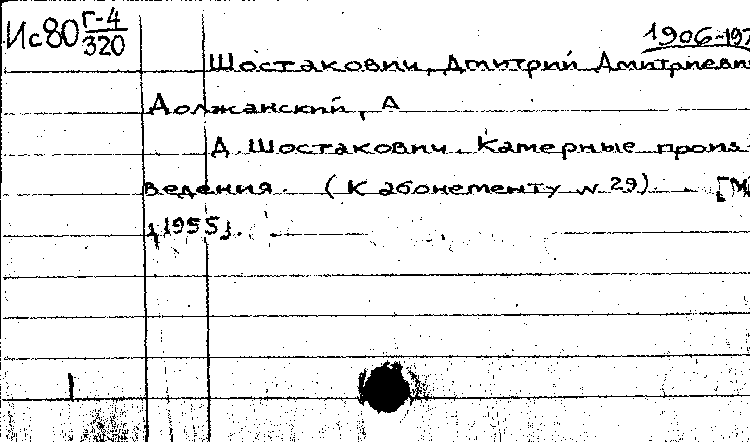 Ис80 Г-4/320
1906-197
Шостакович, Дмитрий Дмитриеви
Должанский, А
Д. Шостакович. Камерные произ-
ведения. (К абонементу № 29). - [М
, 1955].
1